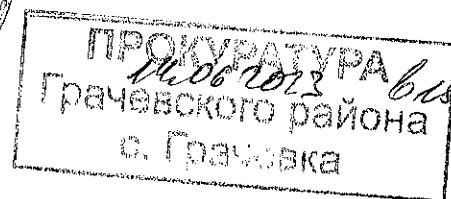 ПРОКУРАТУРА
14.06 2023
Грачевского района
с. Грачевка